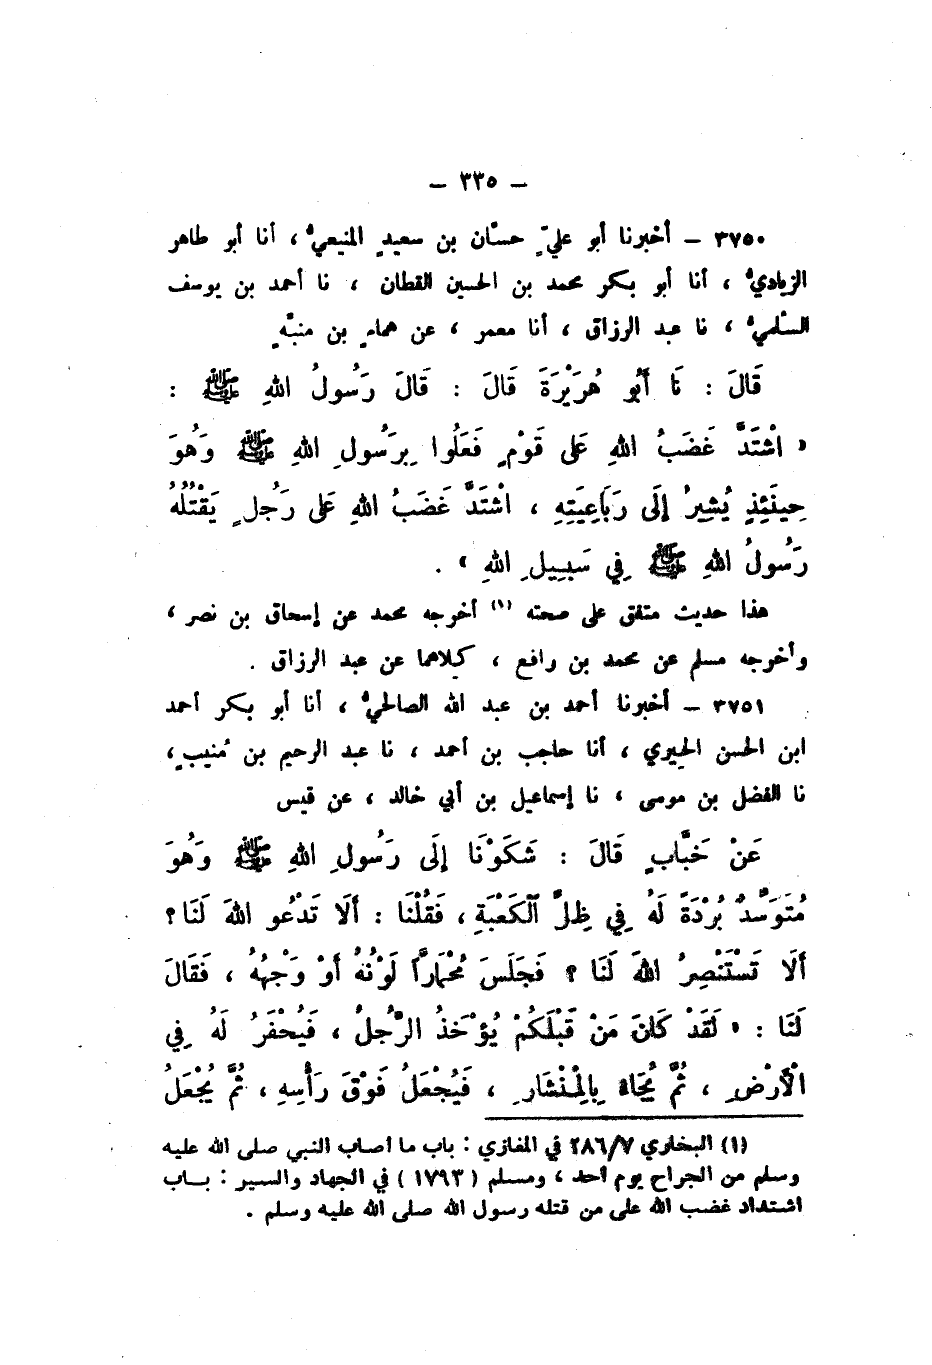 — ٣٣٥ —
٣٧٥٠ — أخبرنا أبو عليّ حسّان بن سعيدٍ المنيعيُّ ، أنا أبو طاهر
الزياديُّ ، أنا أبو بكر محمد بن الحسين القطان ، نا أحمد بن يوسف
السلميُّ ، نا عبد الرزاق ، أنا معمر ، عن همامٍ بن منبّهٍ
قَالَ : نَا أَبُو هُرَيْرَةَ قَالَ : قَالَ رَسُولُ اللهِ ﷺ :
« اشْتَدَّ غَضَبُ اللهِ عَلى قَوْمٍ فَعَلُوا بِرَسُولِ اللهِ ﷺ وَهُوَ
حِينَئِذٍ يُشِيرُ إِلَى رَبَاعِيَتِهِ ، اشْتَدَّ غَضَبُ اللهِ عَلى رَجُلٍ يَقْتُلُهُ
رَسُولُ اللهِ ﷺ فِي سَبِيلِ اللهِ » .
هذا حديث متفق على صحته (١) أخرجه محمد عن إسحاق بن نصر ،
وأخرجه مسلم عن محمد بن رافع ، كلاهما عن عبد الرزاق .
٣٧٥١ — أخبرنا أحمد بن عبد الله الصالحيُّ ، أنا أبو بكر أحمد
ابن الحسن الحِيري ، أنا حاجب بن أحمد ، نا عبد الرحيم بن مُنيبٍ ،
نا الفضل بن موسى ، نا إسماعيل بن أبي خالد ، عن قيس
عَنْ خَبَّابٍ قَالَ : شَكَوْنَا إِلَى رَسُولِ اللهِ ﷺ وَهُوَ
مُتَوَسِّدٌ بُرْدَةً لَهُ فِي ظِلِّ الْكَعْبَةِ ، فَقُلْنَا : أَلَا تَدْعُو اللهَ لَنَا ؟
أَلَا تَسْتَنْصِرُ اللهَ لَنَا ؟ فَجَلَسَ مُحْمَارّاً لَوْنُهُ أَوْ وَجْهُهُ ، فَقَالَ
لَنَا : « لَقَدْ كَانَ مَنْ قَبْلَكُمْ يُؤْخَذُ الرَّجُلُ ، فَيُحْفَرُ لَهُ فِي
الْأَرْضِ ، ثُمَّ يُجَاءُ بِالْمِنْشَارِ ، فَيُجْعَلُ فَوْقَ رَأْسِهِ ، ثُمَّ يُجْعَلُ
(١) البخاري ٢٨٦/٧ في المغازي : باب ما أصاب النبي صلى الله عليه
وسلم من الجراح يوم أحد ، ومسلم ( ١٧٩٣ ) في الجهاد والسير : بــاب
اشتداد غضب الله على من قتله رسول الله صلى الله عليه وسلم .